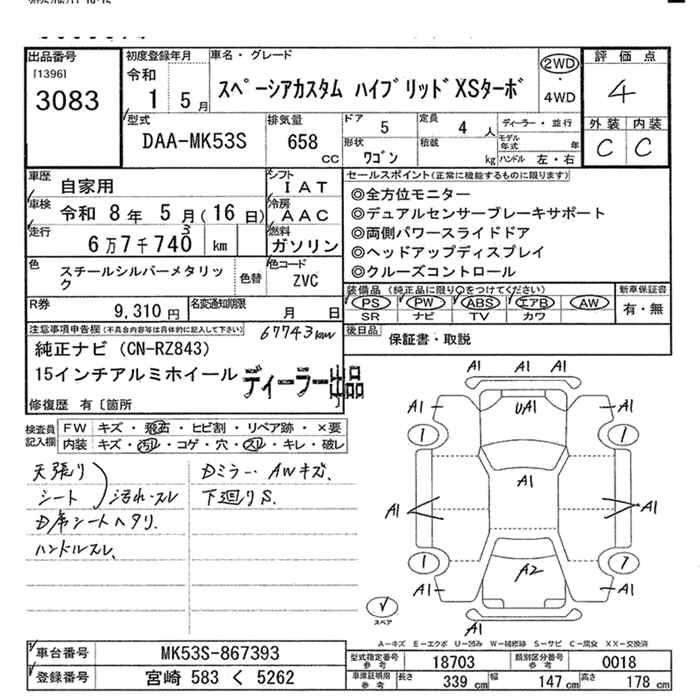 出品番号
[1396]
3083
初度登録年月
令和
1 5月
車名・グレード
スペーシアカスタム ハイブリッドXSターボ
2WD
・
4WD
評価点
4
外装 内装
C C
型式
DAA-MK53S
排気量
658
cc
ドア
5
定員
4 人
形状
ワゴン
積載
kg
ディーラー・並行
モデル年式 年
ハンドル 左・右
車歴
自家用
シフト
IAT
車検
令和 8年 5月(16日)
冷房
AAC
走行
6万7千740 km
3
燃料
ガソリン
色
スチールシルバーメタリック
色替
色コード
ZVC
R券
9,310円
名変通知期限
月 日
セールスポイント(正常に機能するものに限ります)
◎全方位モニター
◎デュアルセンサーブレーキサポート
◎両側パワースライドドア
◎ヘッドアップディスプレイ
◎クルーズコントロール
装備品(純正品に限り○をつけてください)
PS PW ABS エアB AW
SR ナビ TV カワ
新車保証書
有・無
後日品
保証書・取説
注意事項申告欄(不具合内容等は具体的に記入して下さい)
67743km
純正ナビ(CN-RZ843)
15インチアルミホイール
ディーラー出品
修復歴 有〔箇所 〕
検査員記入欄
FW キズ・飛石・ヒビ割・リペア跡・×要
内装 キズ・汚れ・コゲ・穴・スレ・キレ・破レ
天張り
シート
汚れ・スレ
D席シートヘタリ、
ハンドルスレ、
Dミラー・AWキズ、
下廻りS.
A1
A1 A1 A1
UA1
A1 A1
1 1
A1
A1 A1
A2
1 7
A1 A1
A1
スペア
A－キズ E－エクボ U－凹み W－補修跡 S－サビ C－腐食 XX－交換済
車台番号
MK53S-867393
登録番号
宮崎 583 く 5262
型式指定番号
参考
18703
類別区分番号
参考
0018
車庫証明用
参考
長さ
339 cm
幅
147 cm
高さ
178 cm